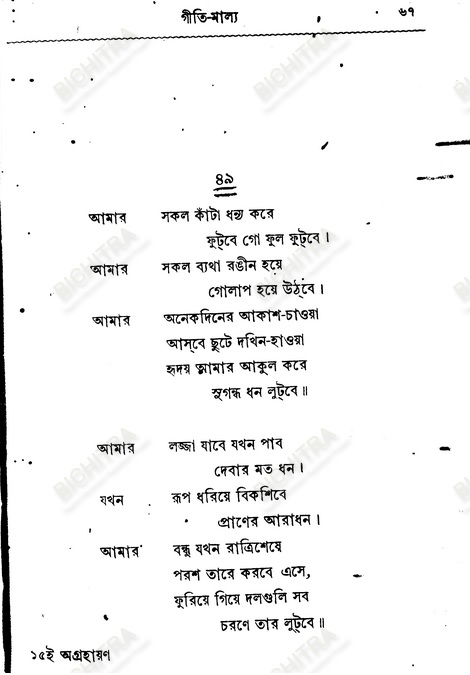 গীতি-মাল্য ৬৭
৪৯
আমার সকল কাঁটা ধন্য করে
ফুট্‌বে গো ফুল ফুট্‌বে।
আমার সকল ব্যথা রঙীন হয়ে
গোলাপ হয়ে উঠ্‌বে।
আমার অনেকদিনের আকাশ-চাওয়া
আস্‌বে ছুটে দখিন-হাওয়া
হৃদয় আমার আকুল করে
সুগন্ধ ধন লুট্‌বে॥
আমার লজ্জা যাবে যখন পাব
দেবার মত ধন।
যখন রূপ ধরিয়ে বিকশিবে
প্রাণের আরাধন।
আমার বন্ধু যখন রাত্রিশেষে
পরশ তারে করবে এসে,
ফুরিয়ে গিয়ে দলগুলি সব
চরণে তার লুট্‌বে॥
১৫ই অগ্রহায়ণ
BICHITRA
BICHITRA
BICHITRA
BICHITRA
BICHITRA
BICHITRA
BICHITRA
BICHITRA
BICHITRA